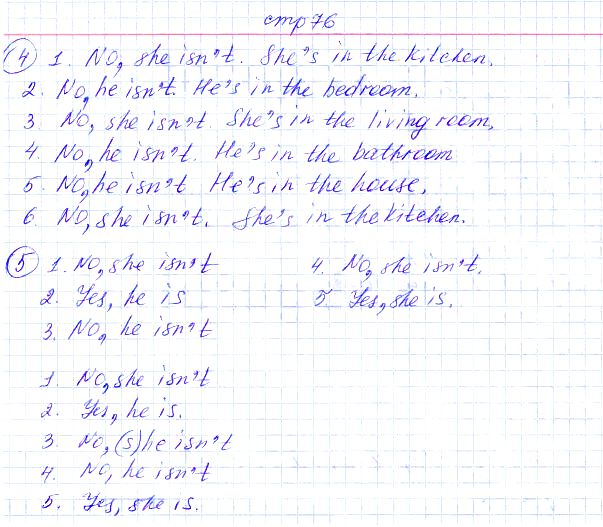 стр 76
④ 1. No, she isn't. She's in the kitchen.
2. No, he isn't. He's in the bedroom.
3. No, she isn't. She's in the living room,
4. No, he isn't. He's in the bathroom
5. No, he isn't He's in the house,
6. No, she isn't. She's in the kitchen.
⑤ 1. No, she isn't
2. Yes, he is
3. No, he isn't
4. No, she isn't.
5 Yes, she is.
1. No, she isn't
2. Yes, he is.
3. No, (s)he isn't
4. No, he isn't
5. Yes, she is.